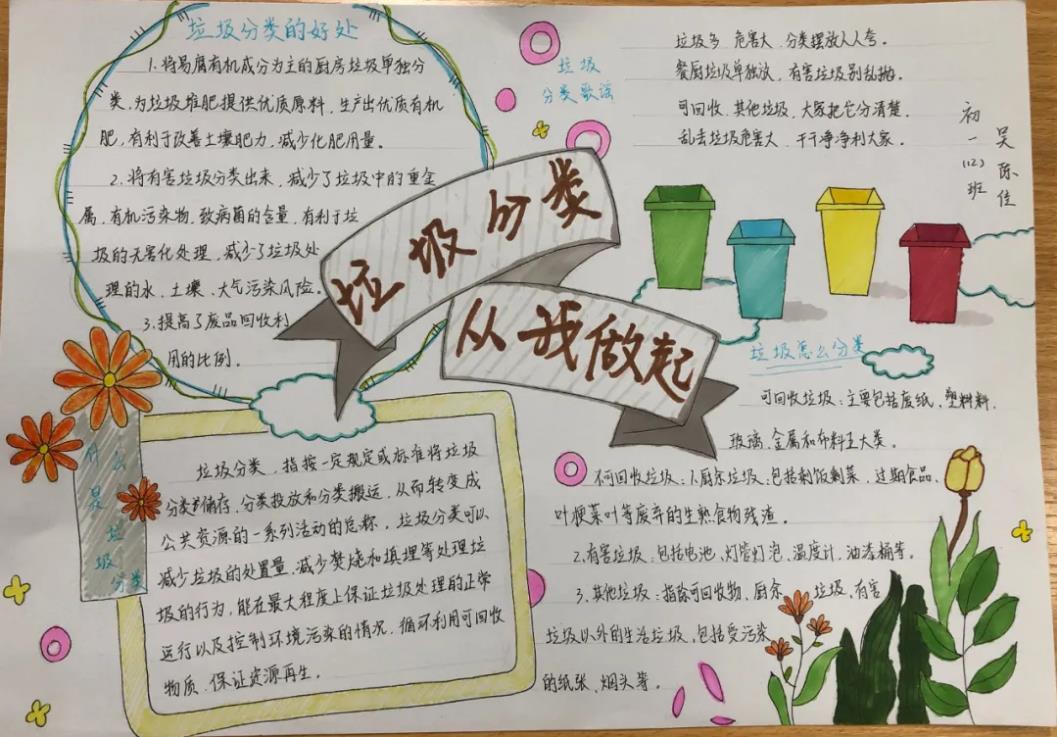 垃圾分类的好处
1.将易腐有机成分为主的厨房垃圾单独分
类,为垃圾堆肥提供优质原料,生产出优质有机
肥,有利于改善土壤肥力,减少化肥用量。
2.将有害垃圾分类出来,减少了垃圾中的重金
属、有机污染物、致病菌的含量,有利于垃
圾的无害化处理,减少了垃圾处
理的水、土壤、大气污染风险。
3.提高了废品回收利
用的比例。
垃圾分类
从我做起
垃圾
分类歌谣
垃圾多 危害大,分类摆放人人夸。
餐厨垃圾单独放,有害垃圾别乱抛。
可回收、其他垃圾,大家把它分清楚。
乱丢垃圾危害大,干干净净利大家。
初一(12)班
吴陈佳
什么
是
垃圾
分类
垃圾分类,指按一定规定或标准将垃圾
分类储存、分类投放和分类搬运,从而转变成
公共资源的一系列活动的总称,垃圾分类可以
减少垃圾的处置量,减少焚烧和填埋等处理垃
圾的行为,能在最大程度上保证垃圾处理的正常
运行以及控制环境污染的情况,循环利用可回收
物质、保证资源再生。
垃圾怎么分类
可回收垃圾:主要包括废纸、塑料料、
玻璃、金属和布料五大类。
不可回收垃圾:1.厨余垃圾:包括剩饭剩菜、过期食品、
叶梗菜叶等废弃的生熟食物残渣。
2.有害垃圾:包括电池、灯管灯泡、温度计、油漆桶等。
3.其他垃圾:指除可回收物、厨余垃圾、有害
垃圾以外的生活垃圾,包括受污染
的纸张、烟头等。